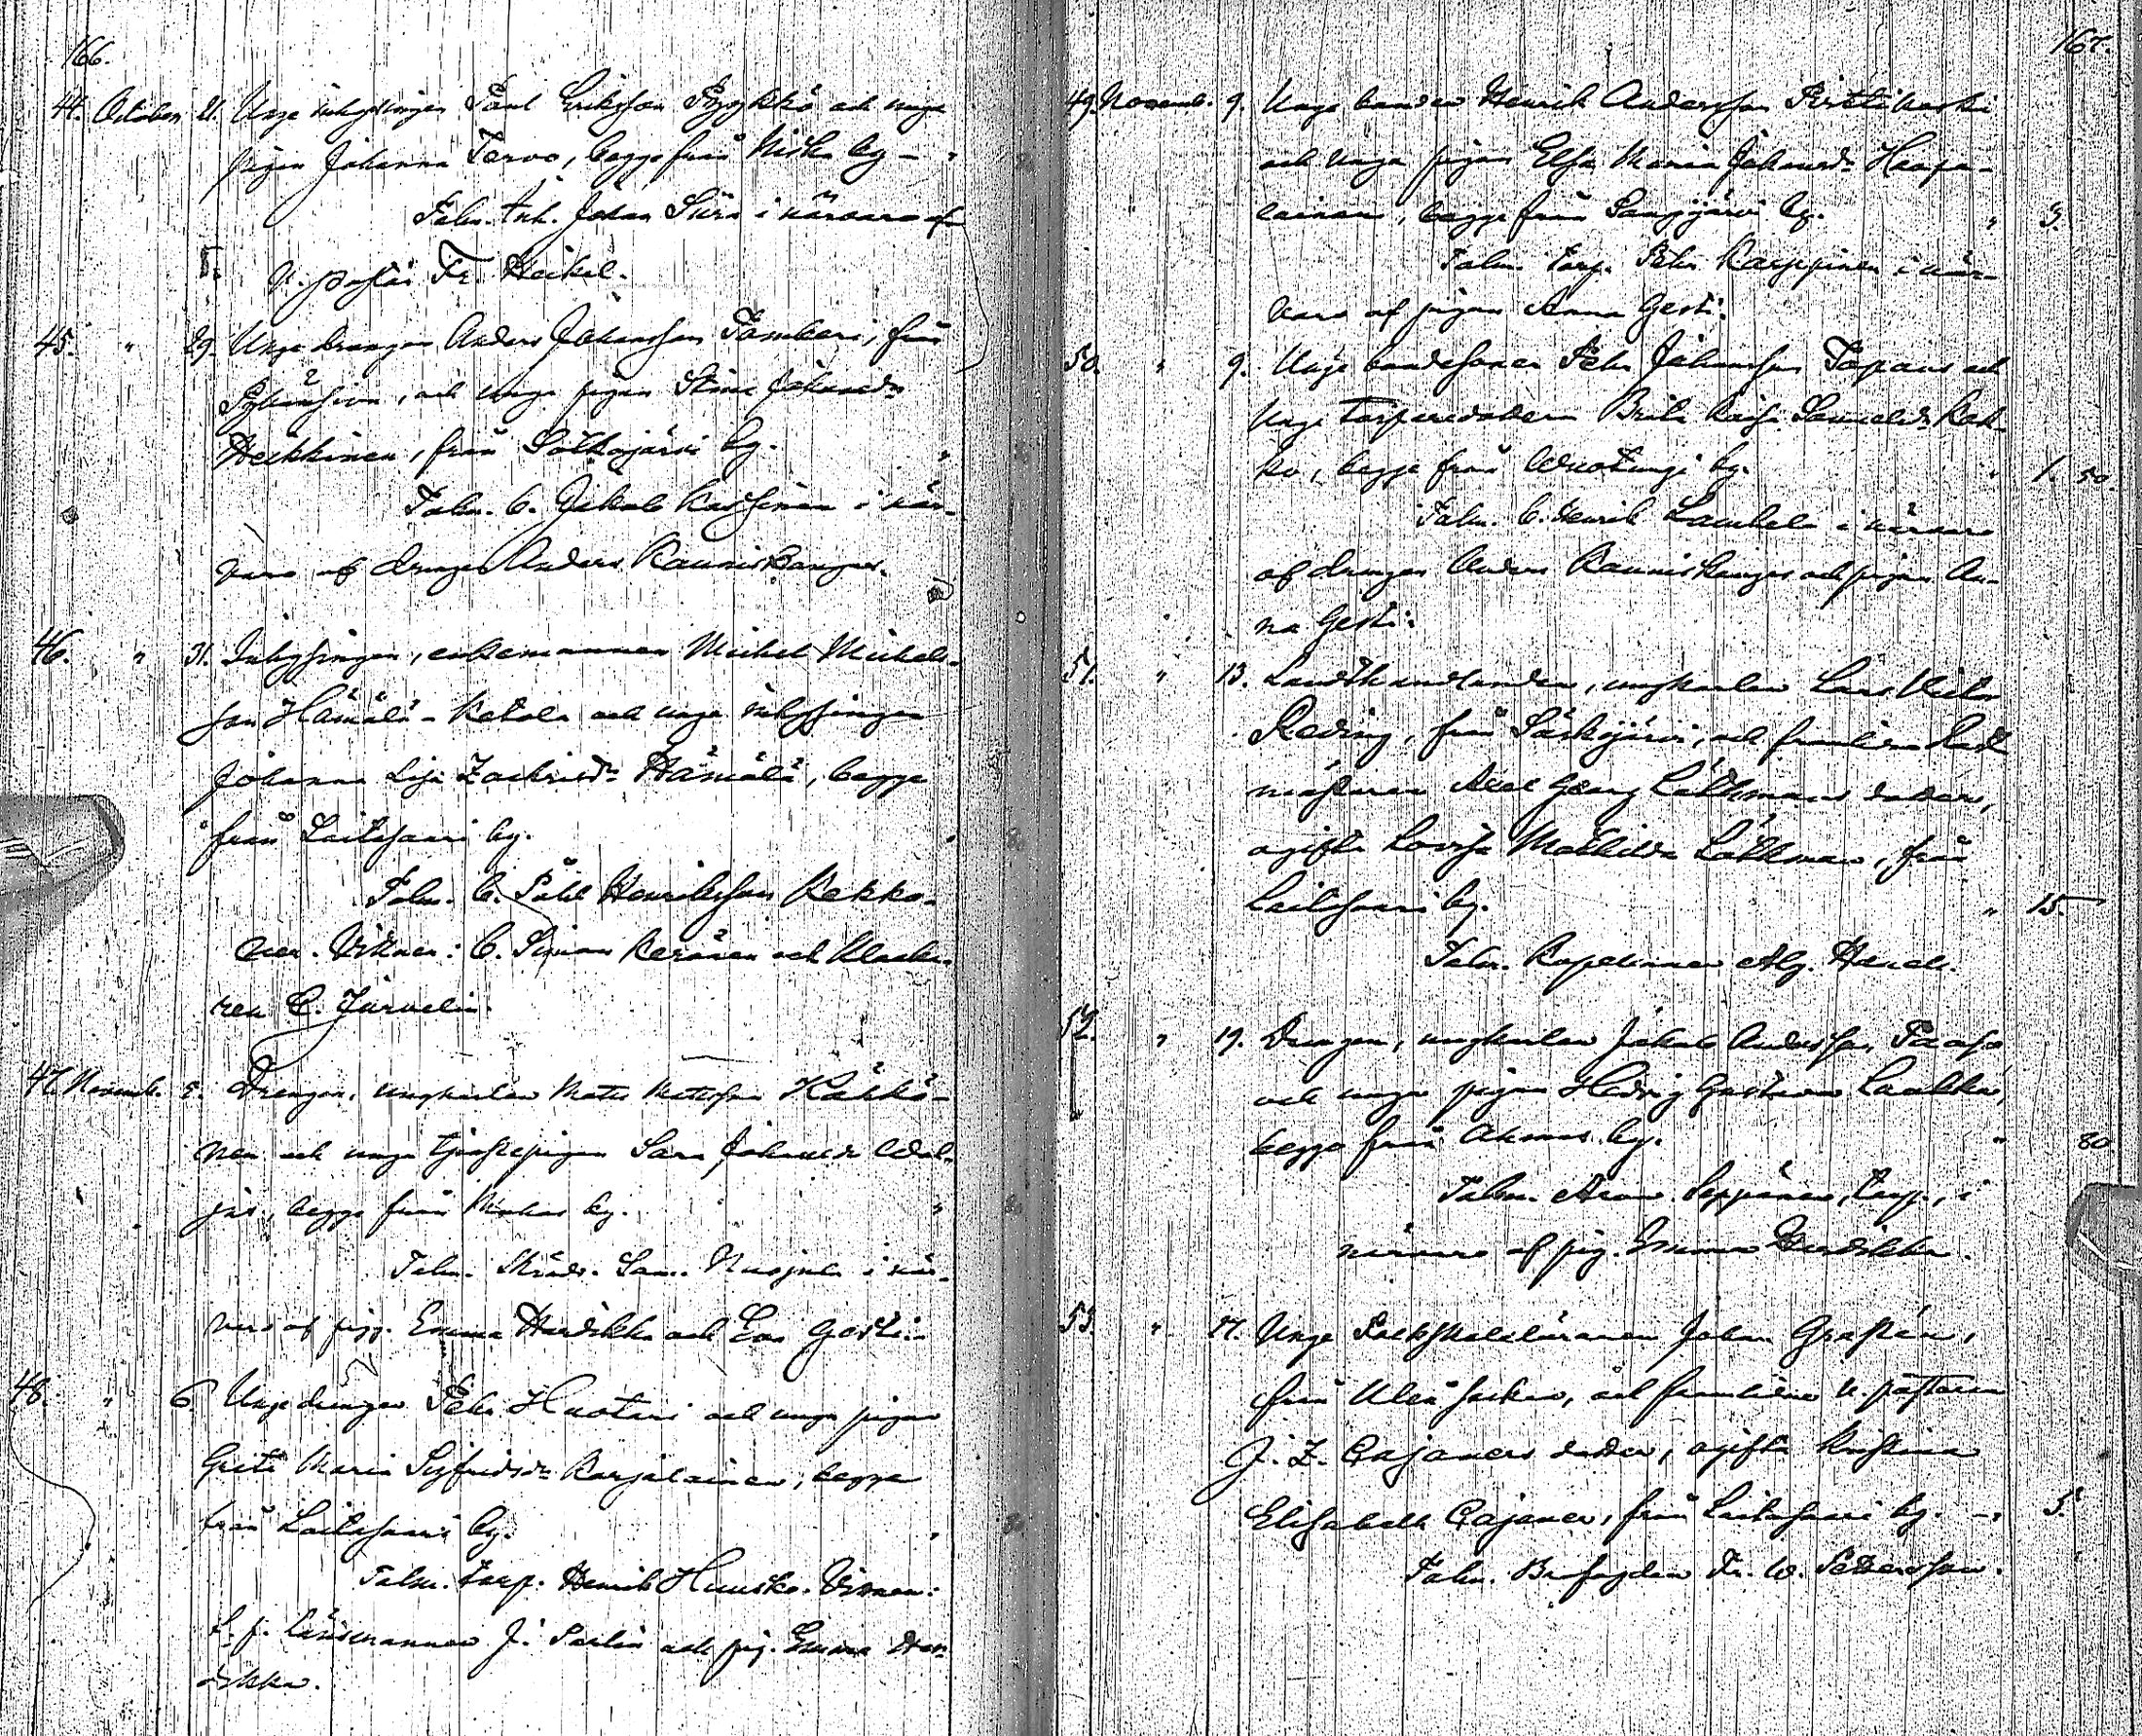 166.
44. October 21. Unge inhysingen Paul Eriksson Pyykkö och unga
pigan Johanna Tervo, begge från Niska by - "
Talm. Inh. Johan Siira i närvaro af
V. pastor Fr. Heikel.
45. " 29. Unge drengen Anders Johansson Tombari, från
och unga pigan Stina Johansdr
Heikkinen, från Sotkajärvi by. "
Talm. b. Jakob Karhinen i när-
varo af drengen Anders Rauniskangas.
46. " 31. Inhysingen, enkemannen Michel Michels-
son Hämälä-Ketola och unga inhysingen
Johanna Lisa Zachrisdr Hämälä, begge
från Laitasaari by. "
Talm. b. Påhl Henriksson Kekko-
nen. Vittnen: b. Simon Keränen och klocka-
ren C. Järvelin.
47. Novemb. 5. Drengen, ungkarlen Matts Mattsson Kähkö-
nen och unga tjenstepigan Sara Johansdr Wal-
jus, begge från Muhos by. "
Talm. Skrädd. Sam. Nuojua i när-
varo af pigg. Emma Hurdikka och Eva Gesti.
48. " 6. Unge drengen Pehr Huotari och unga pigan
Greta Maria Sigfridsdr Karjalainen, begge
från Laitasaari by. "
Talm. Torp. Henrik Huusko. Vittnen:
t. f. länsmannen J. Perlin och pig. Emma Hur-
dikka.
167.
49. Novemb. 9. Unge bonden Henrik Andersson Pirttikoski
och unga pigan Elsa Maria Johansdr Haapa-
lainen, begge från Sanginjärvi by. " 3.
Talm. Torp. Pehr Karppinen i när-
varo af pigan Anna Gesti.
50. " 9. Unge bondesonen Pehr Johansson Tapani och
unga torparedottern Brita Kaisa Samuelsdr Kok-
ko, begge från Wuotungi by. " 1. 50.
Talm. b. Henrik Laukka i närvaro
af drengen Anders Rauniskangas och pigan An-
na Gesti.
51. " 13. Landthandlanden, ungkarlen Lars Victor
Reding, från Särkijärvi, och framlidne
mästaren Axel Georg Löthmans dotter,
ogifta Lovisa Mathilda Löthman, från
Laitasaari by. " 15.
Talm. Kapellanen Alg.
52. " 19. Drengen, ungkarlen Jakob Andersson Paaso
och unga pigan Hedvig Gustava Laakko,
begge från Ahmas by. " 80.
Talm. Aron Seppänen, torp., i
närvaro af pig. Emma Hurdikka.
53. " 17. Unge Folkskoleläraren Johan Grastén,
från Uleå socken, och framlidne v. pastoren
J. Z. Cajaners dotter, ogifta Kristina
Elisabeth Cajaner, från Laitasaari by. - " 5.
Talm. Brofogden Fr. W. Pettersson.